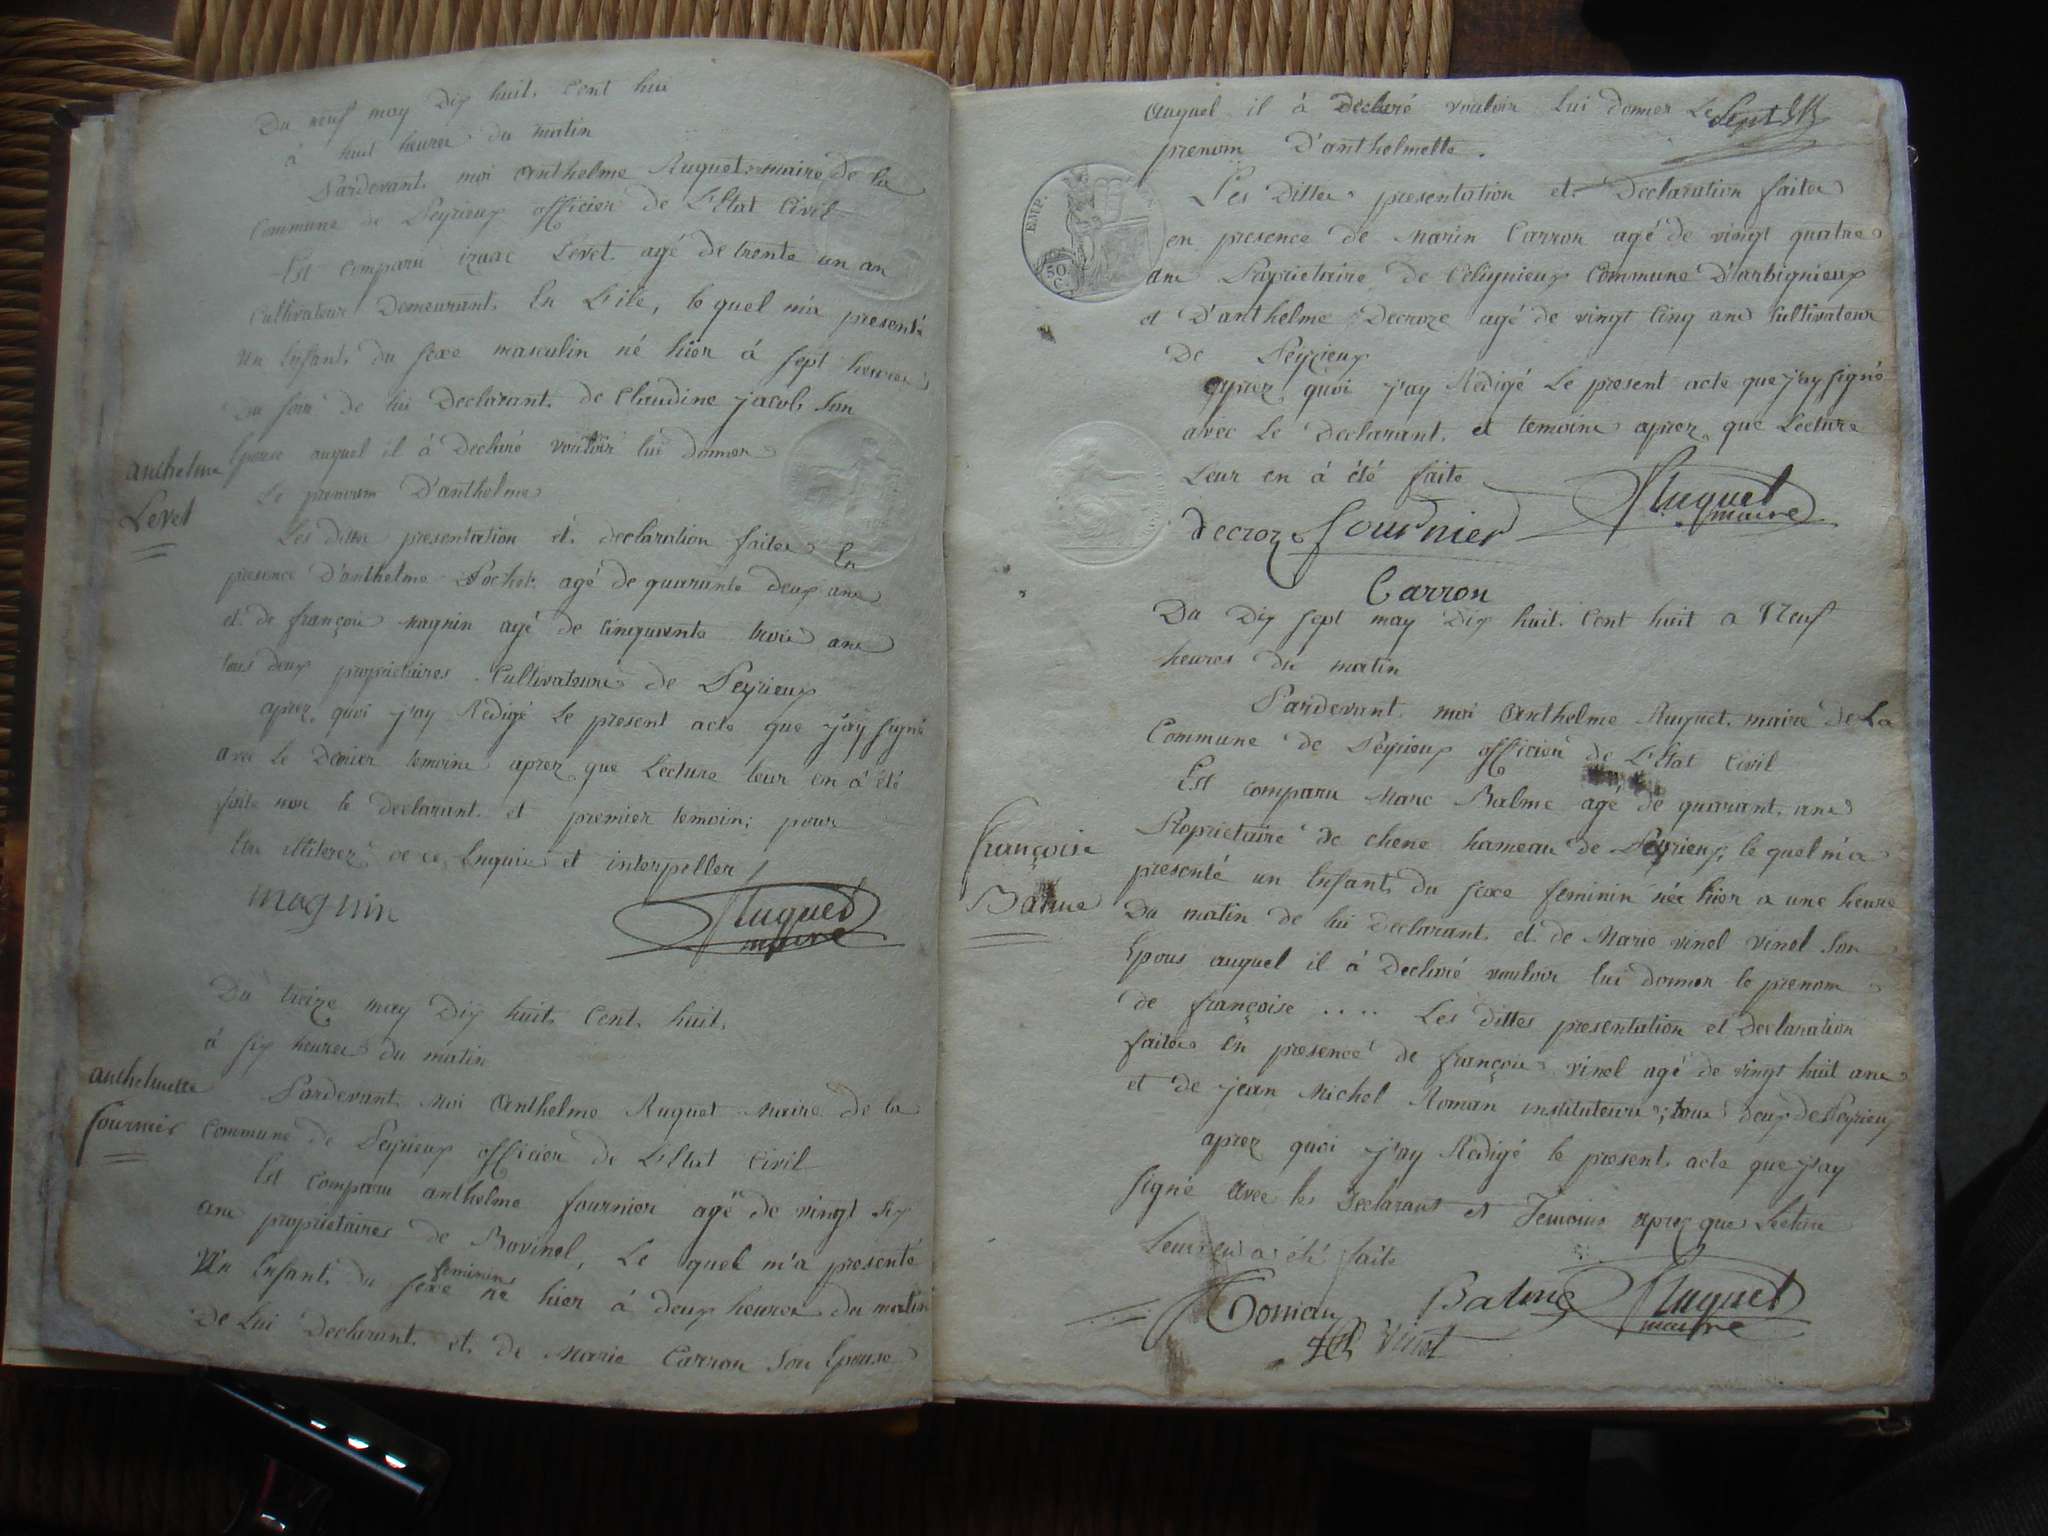 Du neuf may Dix huit Cent hui
à huit heures du matin
Pardevant moi Anthelme Ruquet maire de la
Commune de Peyrieux officier de L'Etat Civil
Est comparu izaac Levet agé de trente un an
Cultivateur Demeurant En L'ile, le quel m'a presenté
un Enfant du sexe masculin né hier à sept heures
Du soir de lui Declarant de Claudine jacob son
Epouse auquel il à Declaré vouloir lui donner
anthelme
Levet
Le prenom D'anthelme
Les dittes presentation et declaration faites En
presence D'anthelme Pochet agé de quarante deux ans
et de françois magnin agé de Cinquante trois ans
tous deux proprietaires Cultivateurs de Peyrieux
aprez quoi j'ay Redigé Le present acte que j'ay signé
avec Le Dernier temoins aprez que Lecture leur en à été
faite non le declarant et premier temoin; pour
Etre illiterez de ce Enquis et interpellez
magnin
Ruquet
maire
Du treize may Dix huit Cent huit
à six heures du matin
anthelmette
fournier
Pardevant Moi Anthelme Ruquet Maire de la
Commune de Peyrieux officier de L'Etat Civil
Est comparu anthelme fournier agé de vingt six
ans proprietaires de Bovinel, Le quel m'a presenté
Un Enfant du sexe feminin né hier à deux heures du matin
De Lui Declarant et de Marie Carron Son Epouse
Auquel il à Declaré vouloir Lui donner Le
prenom D'anthelmette.
EMP.
50
C.
Les Dittes presentation et Declaration faites
en presence de Marin Carron agé de vingt quatre
ans Proprietaire de Colignieux Commune D'arbignieux
et D'anthelme Decroze agé de vingt Cinq ans Cultivateur
De Peyrieux
aprez quoi j'ay Redigé Le present acte que j'ay signé
avec Le Declarant et temoins aprez que Lecture
Leur en à été faite
Ruquet
maire
Decroze fournier
Carron
Du Dix sept may Dix huit Cent huit a Neuf
heures du matin
Pardevant moi Anthelme Ruquet maire de La
Commune de Peyrieux officier de L'Etat Civil
Est comparu Marc Balme agé de quarant ans
françoise
Balme
Proprietaire de chene hameau de Peyrieux; le quel m'a
presenté un Enfant du sexe feminin née hier a une heure
Du matin de lui Declarant et de Marie vinel vinel Son
Epous auquel il à Declaré vouloir lui donner le prenom
de françoise .... Les dittes presentation et Declaration
faites En presence de françois vinel agé de vingt huit ans
et de jean Michel Roman instituteurs; tous deux de Peyrieux
aprez quoi j'ay Redigé le present acte que j'ay
signé avec les Declarant et Temoins aprez que Lecture
Leur en a été faite
Roman Balme Ruquet
maire
vinel